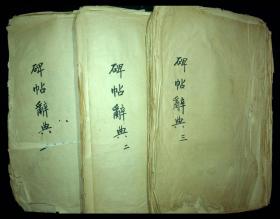 碑帖辭典 一
碑帖辭典 二
碑帖辭典 三